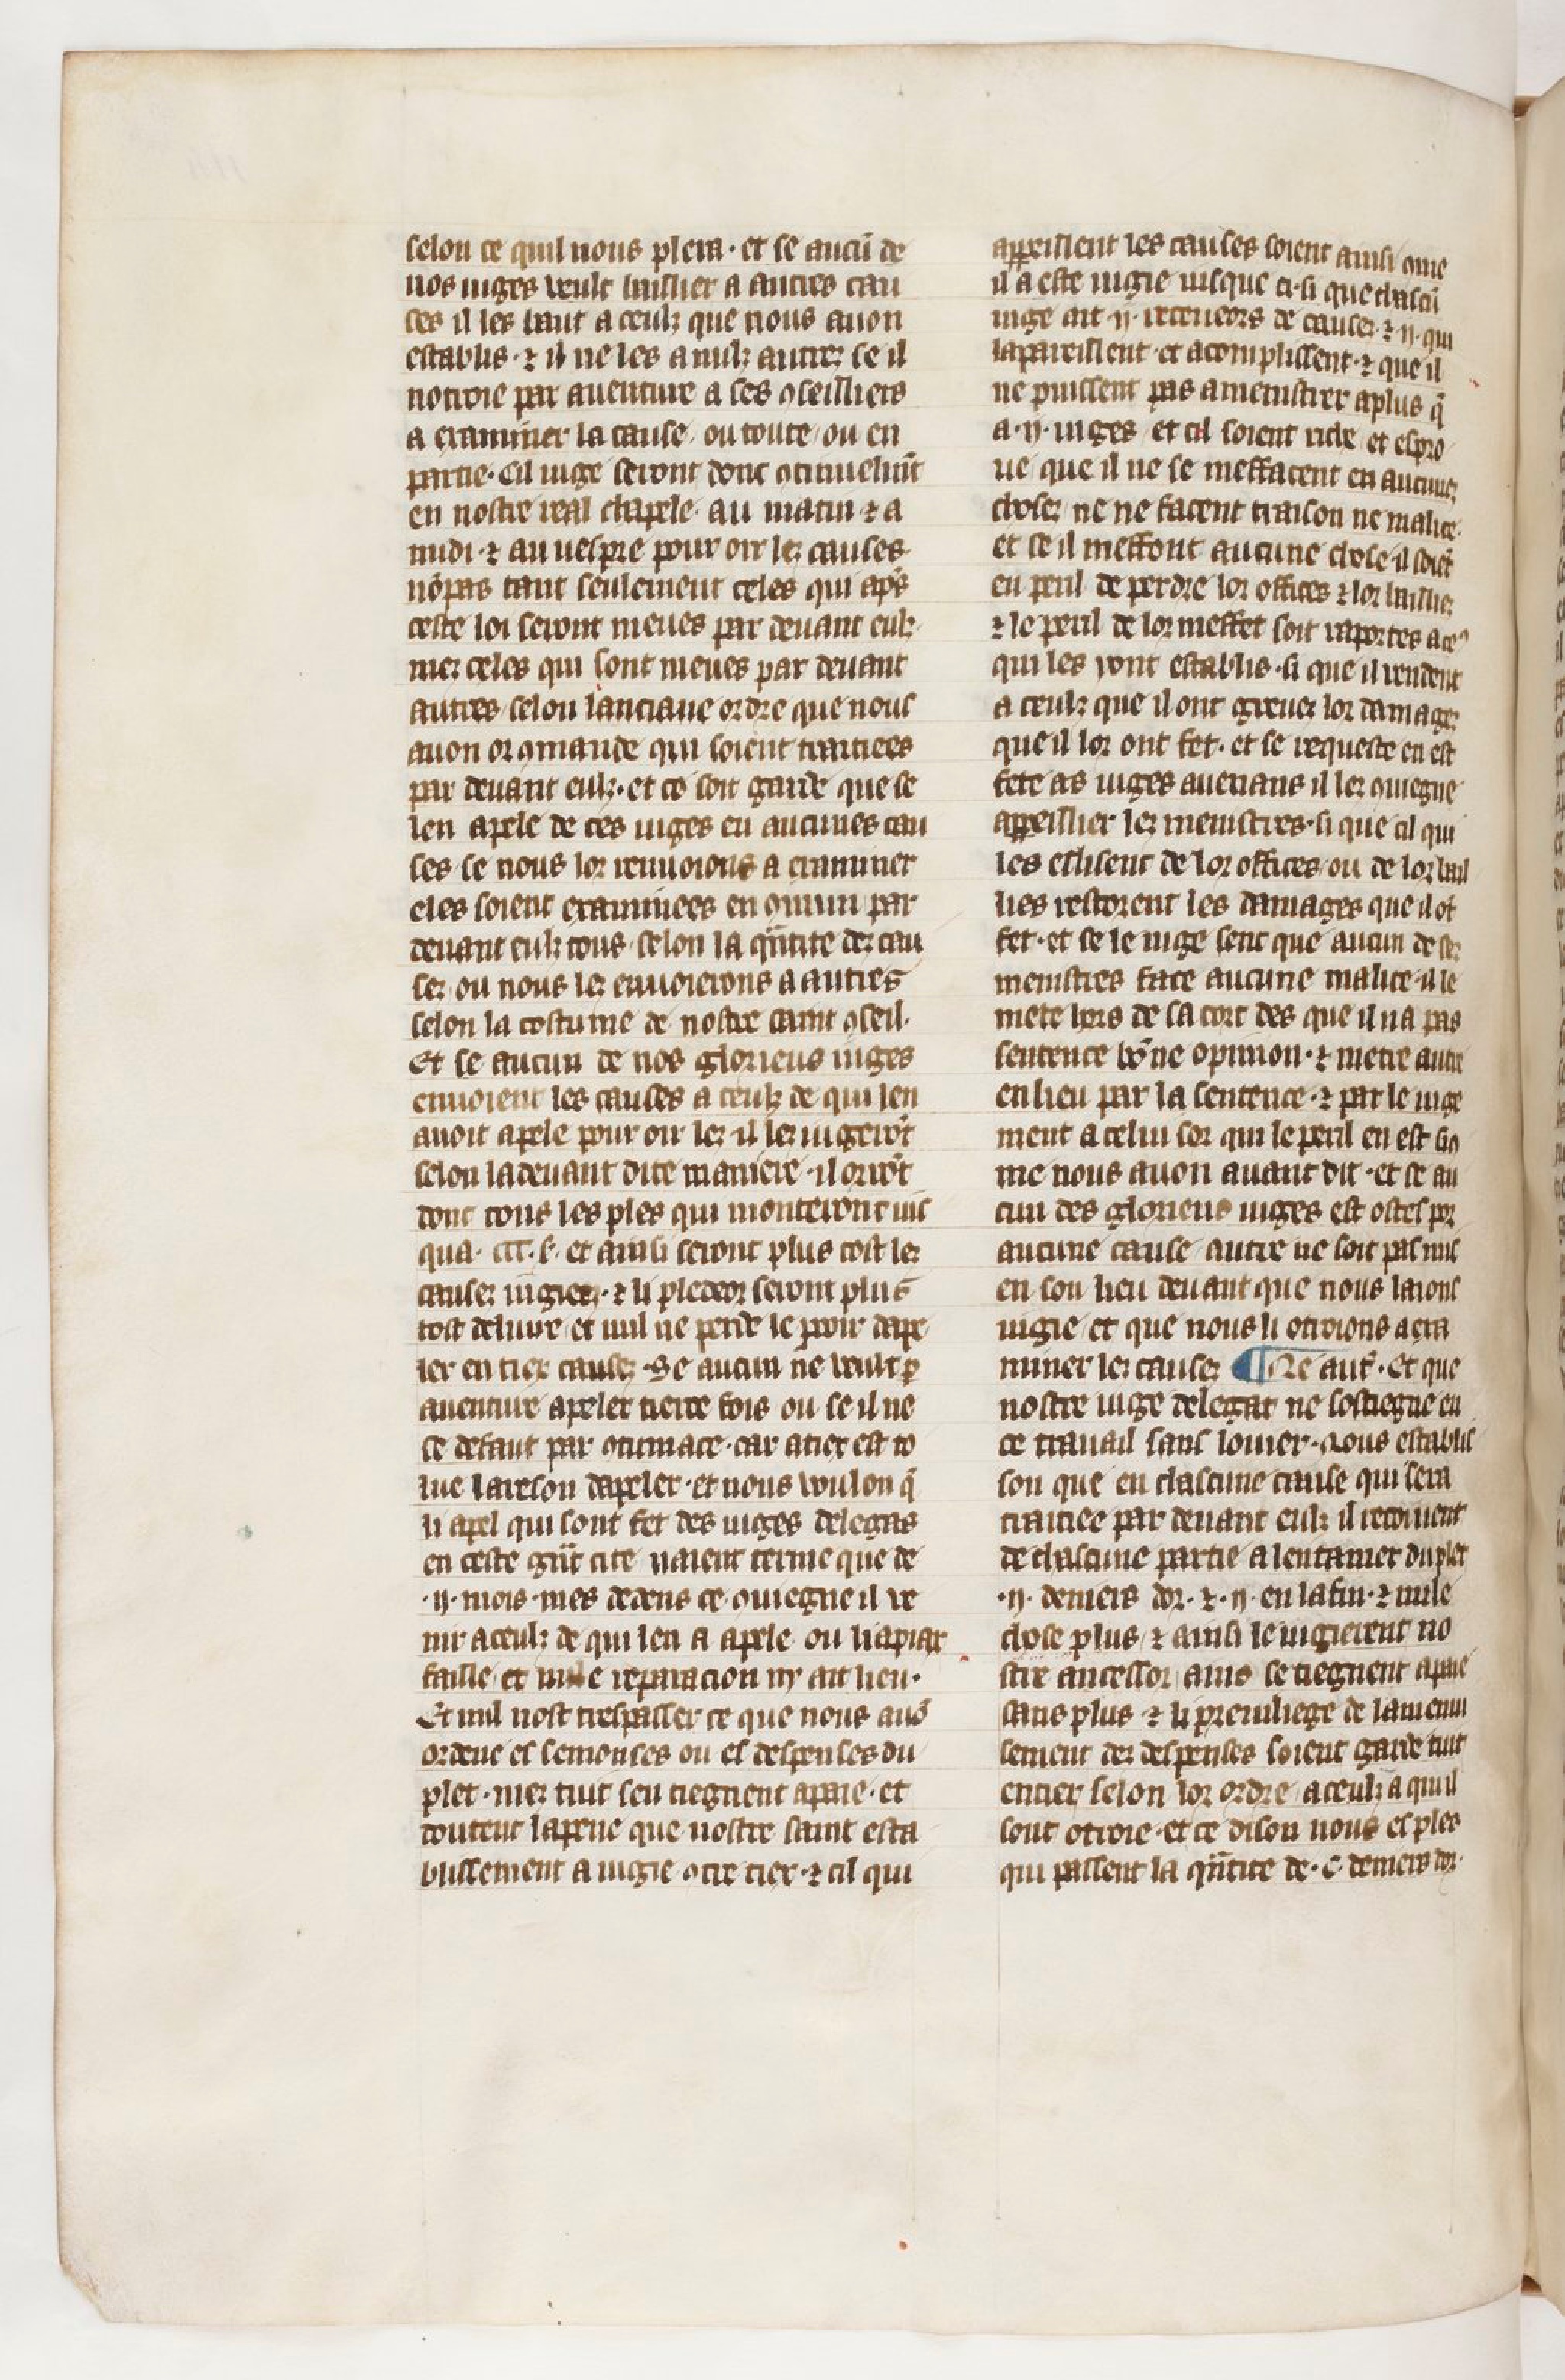 selon ce quil nous plera · et se aucũ de
nos iuges veult baillier a autres cau
ses il les baut a ceulz que nous auon
establis · ⁊ il ne les a nulz autrez se il
notroie par auenture a ses ꝯseilliers
a examiner la cause / ou toute / ou en
partie · Cil iuge seront donc ꝯtinuelmẽt
en nostre real chapele · au matin ⁊ a
midi · ⁊ au uespre pour oir lez causes ·
nõpas tant seulement celes qui apꝰs
ceste loi seront meues par deuant eulz ·
mez celes qui sont meues par deuant
autres / selon lanciane ordre que nous
auon or ꝯmande qui soient traitiees
par deuant eulz · et ce soit garde que se
len apele de ces iuges en aucunes cau
ses · se nous lor renuoions a examiner
eles soient examinees en ꝯmun par
deuant eulz tous / selon la qũtite dez cau
sez / ou nous lez enuoierons a autres
selon la costume de nostre saint ꝯseil ·
Et se aucun de nos glorieus iuges
enuoient les causes a ceulz de qui len
auoit apele pour oir lez · il lez iugerõt
selon ladeuant dite maniere · il orrõt
donc tous les ples qui monteront ius
qua · CCC · ł · et ainsi seront plus tost lez
causez iugiez · ⁊ li pledeor seront plus
tost deliure et nul ne perde le pooir dape
ler en tiex causez · Se aucun ne veult ꝑ
auenture apeler tierce fois ou se il ne
se defaut par ꝯtumace · car atiex est to
lue laireson dapeler · et nous voulon q̃
li apel qui sont fet des iuges delegas
en ceste grãt cite naient terme que de
· ij · mois · mes dedens ce ꝯuiegne il ve
nir aceulz de qui len a apele ou liapiax
faille / et nule reparacion ny ait lieu ·
Et nul nost trespasser ce que nous auõ
ordene es semonses ou es despenses du
plet · mez tuit sen tiegnent apaie · et
doutent lapene que nostre saint esta
blissement a iugie ꝯtre tiex · ⁊ cil qui
appeillent les causes soient ainsi ꝯme
il a este iugie iusque ci · si que chascũ
iuge ait · ij · receueors de causez · ⁊ · ij · qui
lapareillent et acomplissent · ⁊ que il
ne puissent pas amenistrer aplus q̃
a · ij · iuges / et cil soient riche et espro
ue que il ne se meffacent en aucunez
chosez ne ne facent traison ne malice ·
et se il meffont aucune chose · il soiẽt
en peril de perdre lor offices ⁊ lor bailliez
⁊ le peril de lor meffet soit raportes a ceꝰ
qui les y ont establis · si que il rendent
a ceulz que il ont greuez lor damagez
que il lor ont fet · et se requeste en est
fete as iuges auenans il lez ꝯuiegne
appeillier lez menistres · si que cil qui
les eslisent de lor offices / ou de lor bail
lies restorent les damages que il ot
fet · et se le iuge sent que aucun de sez
menistres face aucune malice · il le
mete hors de sa cort des que il na pas
sentence bõne opinion · ⁊ metre autre
en lieu par la sentence · ⁊ par le iuge
ment a celui sor qui le peril en est si ꝯ
me nous auon auant dit · et se au
cun des glorieus iuges est ostes por
aucune cause / autre ne soit pas mis
en son lieu deuant que nous laions
iugie / et que nous li otroions a exa
miner lez causez ¶ Ne aut̃ · Et que
nostre iuge delegat ne sostiegne en
ce trauail sans louier · Nous establis
son que en chascune cause qui sera
traitiee par deuant eulz il recoiuent
de chascune partie a lentamer du plet
· ij · deniers dor · ⁊ · ij · en lafin · ⁊ nule
chose plus / ⁊ ainsi le iugierent no
stre ancessor / ains se tiegnent apaie
sans plus · ⁊ li preuiliege de lamenui
sement dez despenses soient garde tuit
entier / selon lor ordre / aceulz a qui il
sont otroie · et ce dison nous es ples
qui passent la qũtite de · C · deniers dor ·